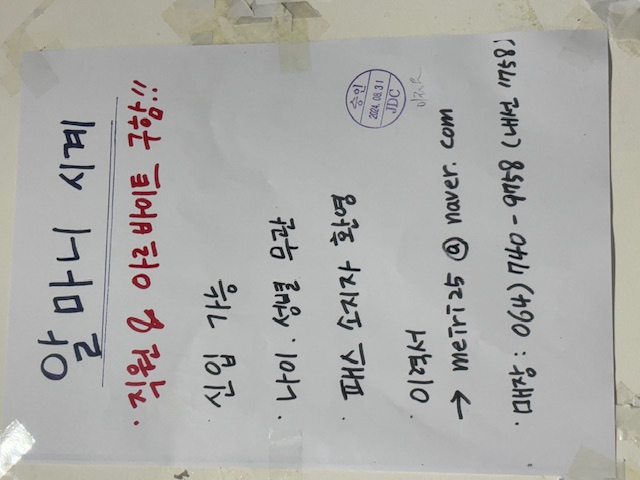 알마니 시계
· 직원 & 아르바이트 구함!!
신입 가능
· 나이. 성별 무관
· 패스 소지자 환영
· 이력서
→ meiri25@naver.com
· 매장 : 064) 740-9758 (내선 1758)
승인
2024.08.31
JDC